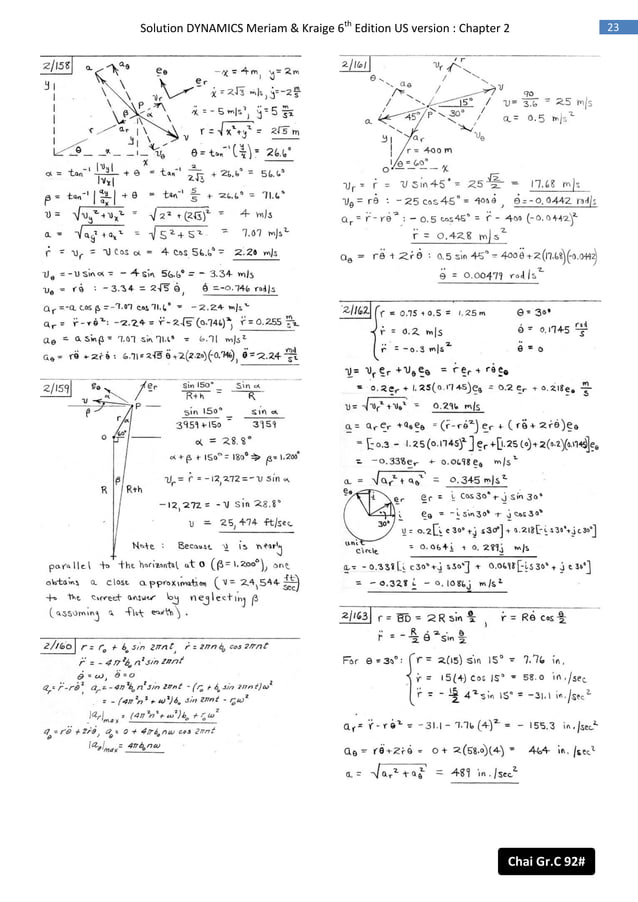 Solution DYNAMICS Meriam & Kraige 6th Edition US version : Chapter 2
23
2/158
a
aθ
eθ
er
y
P
vr
β
α
r
ar
v
y
θ
x
vθ
x
-x = 4 m, y = 2 m
ẋ = 2√3 m/s, ẏ = -2 m/s
ẍ = -5 m/s², ÿ = 5 m/s²
r = √x²+y² = 2√5 m
θ = tan⁻¹(y/x) = 26.6°
α = tan⁻¹ |vy|/|vx| + θ = tan⁻¹ 2/2√3 + 26.6° = 56.6°
β = tan⁻¹ |ay/ax| + θ = tan⁻¹ 5/5 + 26.6° = 71.6°
v = √vy²+vx² = √2²+(2√3)² = 4 m/s
a = √ay²+ax² = √5²+5² = 7.07 m/s²
ṙ = vr = v cos α = 4 cos 56.6° = 2.20 m/s
vθ = -v sin α = -4 sin 56.6° = -3.34 m/s
vθ = rθ̇ : -3.34 = 2√5 θ̇, θ̇ = -0.746 rad/s
ar = -a cos β = -7.07 cos 71.6° = -2.24 m/s²
ar = r̈-rθ̇²: -2.24 = r̈-2√5 (0.746)², r̈ = 0.255 m/s²
aθ = a sin β = 7.07 sin 71.6° = 6.71 m/s²
aθ = rθ̈ + 2ṙθ̇ : 6.71 = 2√5 θ̈ + 2(2.20)(-0.746), θ̈ = 2.24 rad/s²
2/159
eθ
er
v
α
β
P
r
α
O
60°
R
R+h
sin 150°/R+h = sin α/R
sin 150°/3959+150 = sin α/3959
α = 28.8°
α + β + 150° = 180° ⇒ β = 1.200°
vr = ṙ = -12,272 = -v sin α
-12,272 = -v sin 28.8°
v = 25,474 ft/sec
Note : Because v is nearly
parallel to the horizontal at O (β = 1.200°), one
obtains a close approximation (v = 24,544 ft/sec)
to the correct answer by neglecting β
(assuming a flat earth).
2/160
r = r₀ + b₀ sin 2πnt, ṙ = 2πnb₀ cos 2πnt
r̈ = -4π²b₀n² sin 2πnt
θ̇ = ω, θ̈ = 0
ar = r̈-rθ̇², ar = -4π²b₀n² sin 2πnt - (r₀ + b₀ sin 2πnt)ω²
= -(4π²n² + ω²)b₀ sin 2πnt - r₀ω²
|ar|max = (4π²n² + ω²)b₀ + r₀ω²
aθ = rθ̈ + 2ṙθ̇, aθ = 0 + 4πb₀nω cos 2πnt
|aθ|max = 4πb₀nω
2/161
r
vr
θ
aθ
v
15°
a
45°
P
30°
y
ar
vθ
r = 400 m
O
θ = 60°
x
v = 90/3.6 = 25 m/s
a = 0.5 m/s²
vr = ṙ = v sin 45° = 25 √2/2 = 17.68 m/s
vθ = rθ̇ : -25 cos 45° = 400 θ̇, θ̇ = -0.0442 rad/s
ar = r̈-rθ̇² : -0.5 cos 45° = r̈ - 400 (-0.0442)²
r̈ = 0.428 m/s²
aθ = rθ̈ + 2ṙθ̇ : 0.5 sin 45° = 400θ̈ + 2(17.68)(-0.0442)
θ̈ = 0.00479 rad/s²
2/162
r = 0.75 + 0.5 = 1.25 m θ = 30°
ṙ = 0.2 m/s θ̇ = 0.1745 rad/s
r̈ = -0.3 m/s² θ̈ = 0
v = vr er + vθ eθ = ṙ er + rθ̇ eθ
= 0.2 er + 1.25(0.1745)eθ = 0.2 er + 0.218 eθ m/s
v = √vr² + vθ² = 0.296 m/s
a = ar er + aθ eθ = (r̈-rθ̇²) er + (rθ̈ + 2ṙθ̇)eθ
= [-0.3 - 1.25(0.1745)²] er + [1.25(0) + 2(0.2)(0.1745)]eθ
= -0.338 er + 0.0698 eθ m/s²
a = √ar² + aθ² = 0.345 m/s²
eθ
j
er
i
30°
unit
circle
er = i cos 30° + j sin 30°
eθ = -i sin 30° + j cos 30°
v = 0.2[i c30° + j s30°] + 0.218[-i s30° + j c30°]
= 0.064 i + 0.289 j m/s
a = -0.338[i c30° + j s30°] + 0.0698[-i s30° + j c30°]
= -0.328 i - 0.1086 j m/s²
2/163
r = BD = 2R sin θ/2, ṙ = Rθ̇ cos θ/2
r̈ = -R/2 θ̇² sin θ/2
For θ = 30°: r = 2(15) sin 15° = 7.76 in.
ṙ = 15(4) cos 15° = 58.0 in./sec
r̈ = -15/2 4² sin 15° = -31.1 in./sec²
ar = r̈ - rθ̇² = -31.1 - 7.76(4)² = -155.3 in./sec²
aθ = rθ̈ + 2ṙθ̇ = 0 + 2(58.0)(4) = 464 in./sec²
a = √ar² + aθ² = 489 in./sec²
Chai Gr.C 92#